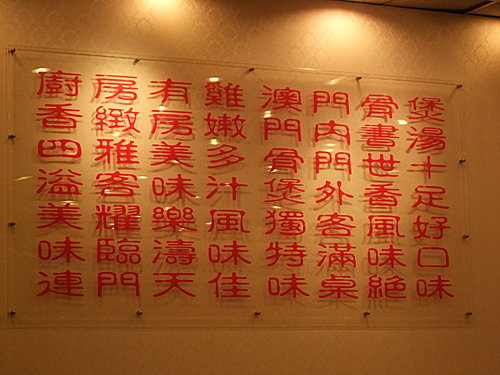 煲湯十足好口味
骨書世香風味絕
門內門外客滿桌
澳門骨煲獨特味
雞嫩多汁風味佳
有房美味樂濤天
房緻雅客耀臨門
廚香四溢美味連